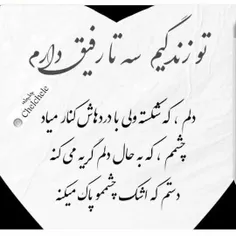 تو زندگیم سه تا رفیق دارم
چلچله
Chelchele
دلم ، که شکسته ولی با دردهاش کنار میاد
چشمم ، که به حال دلم گریه می کنه
دستم که اشک چشممو پاک میکنه